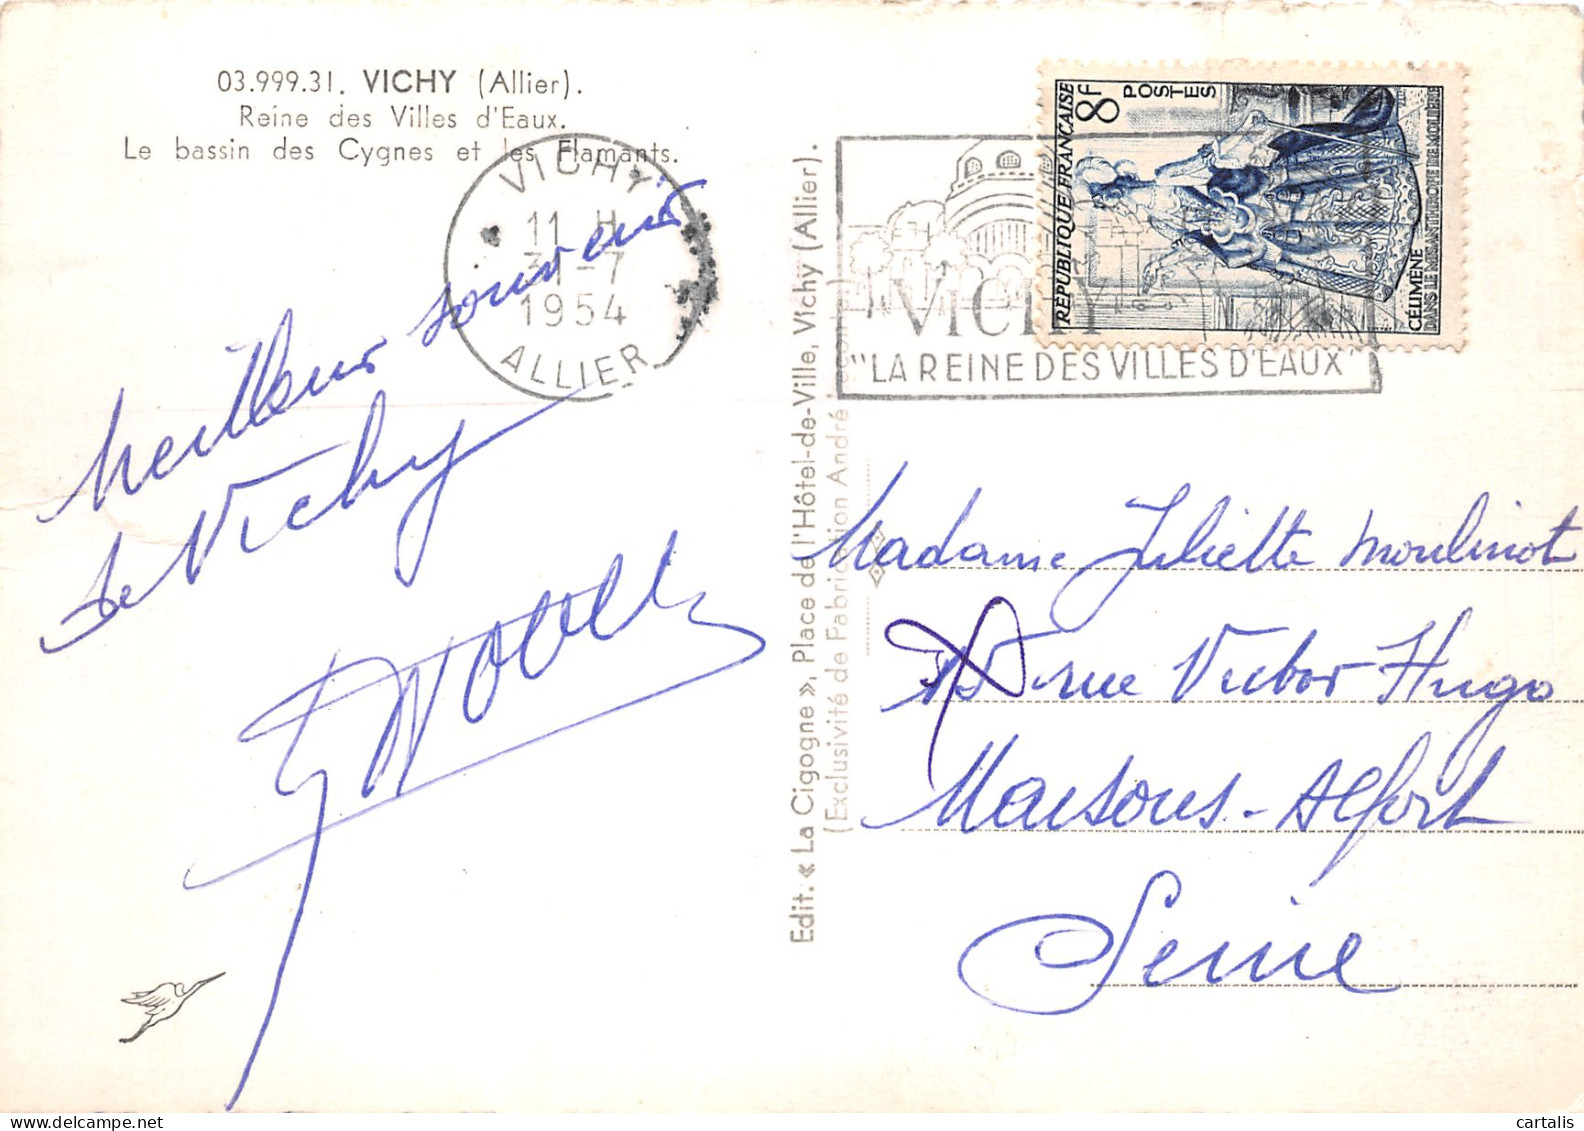 03.999.31. VICHY (Allier).
Reine des Villes d'Eaux.
Le bassin des Cygnes et les Flamants.
VICHY
11 H
31-7
1954
ALLIER
Meilleur souvenir
de Vichy
Edit. « La Cigogne », Place de l'Hôtel-de-Ville, Vichy (Allier).
(Exclusivité de Fabrication André
VICHY
"LA REINE DES VILLES D'EAUX"
RÉPUBLIQUE FRANÇAISE
8F
POSTES
CÉLIMÈNE
DANS LE MISANTHROPE DE MOLIÈRE
Madame Juliette Moulinot
15 rue Victor Hugo
Maisons-Alfort
Seine
cartalis